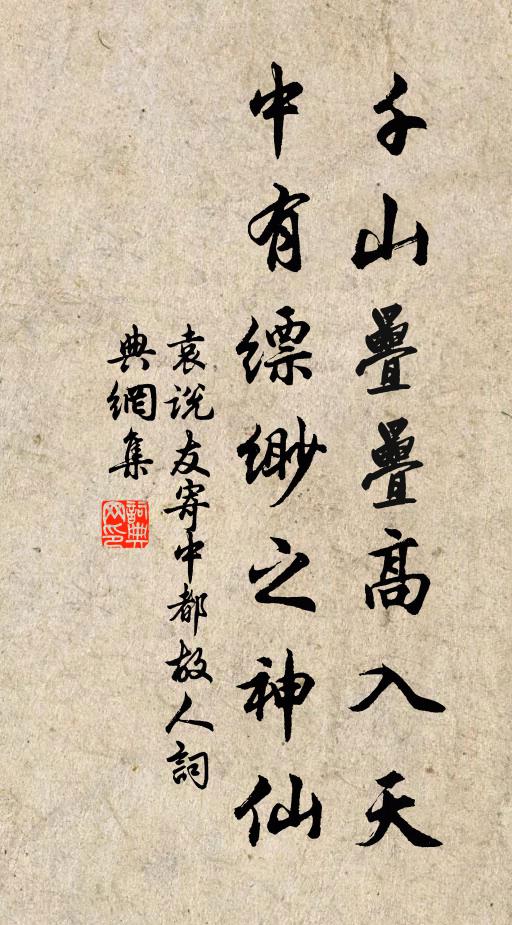 千山疊疊高入天
中有縹緲之神仙
袁説友寄中都故人詞
典網集
詞典網印